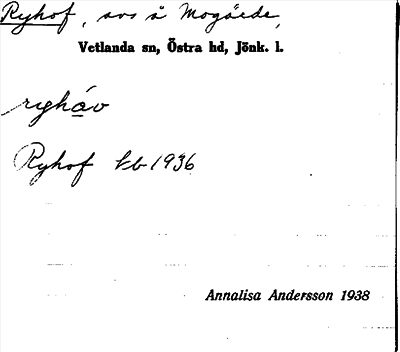 Ryhof, avs å Mogärde,
Vetlanda sn, Östra hd, Jönk. l.
ryháv
Ryhof kb 1936
Annalisa Andersson 1938